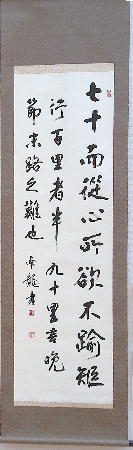 七十而從心所欲不踰矩
行百里者半九十里言晩
節末路之難也